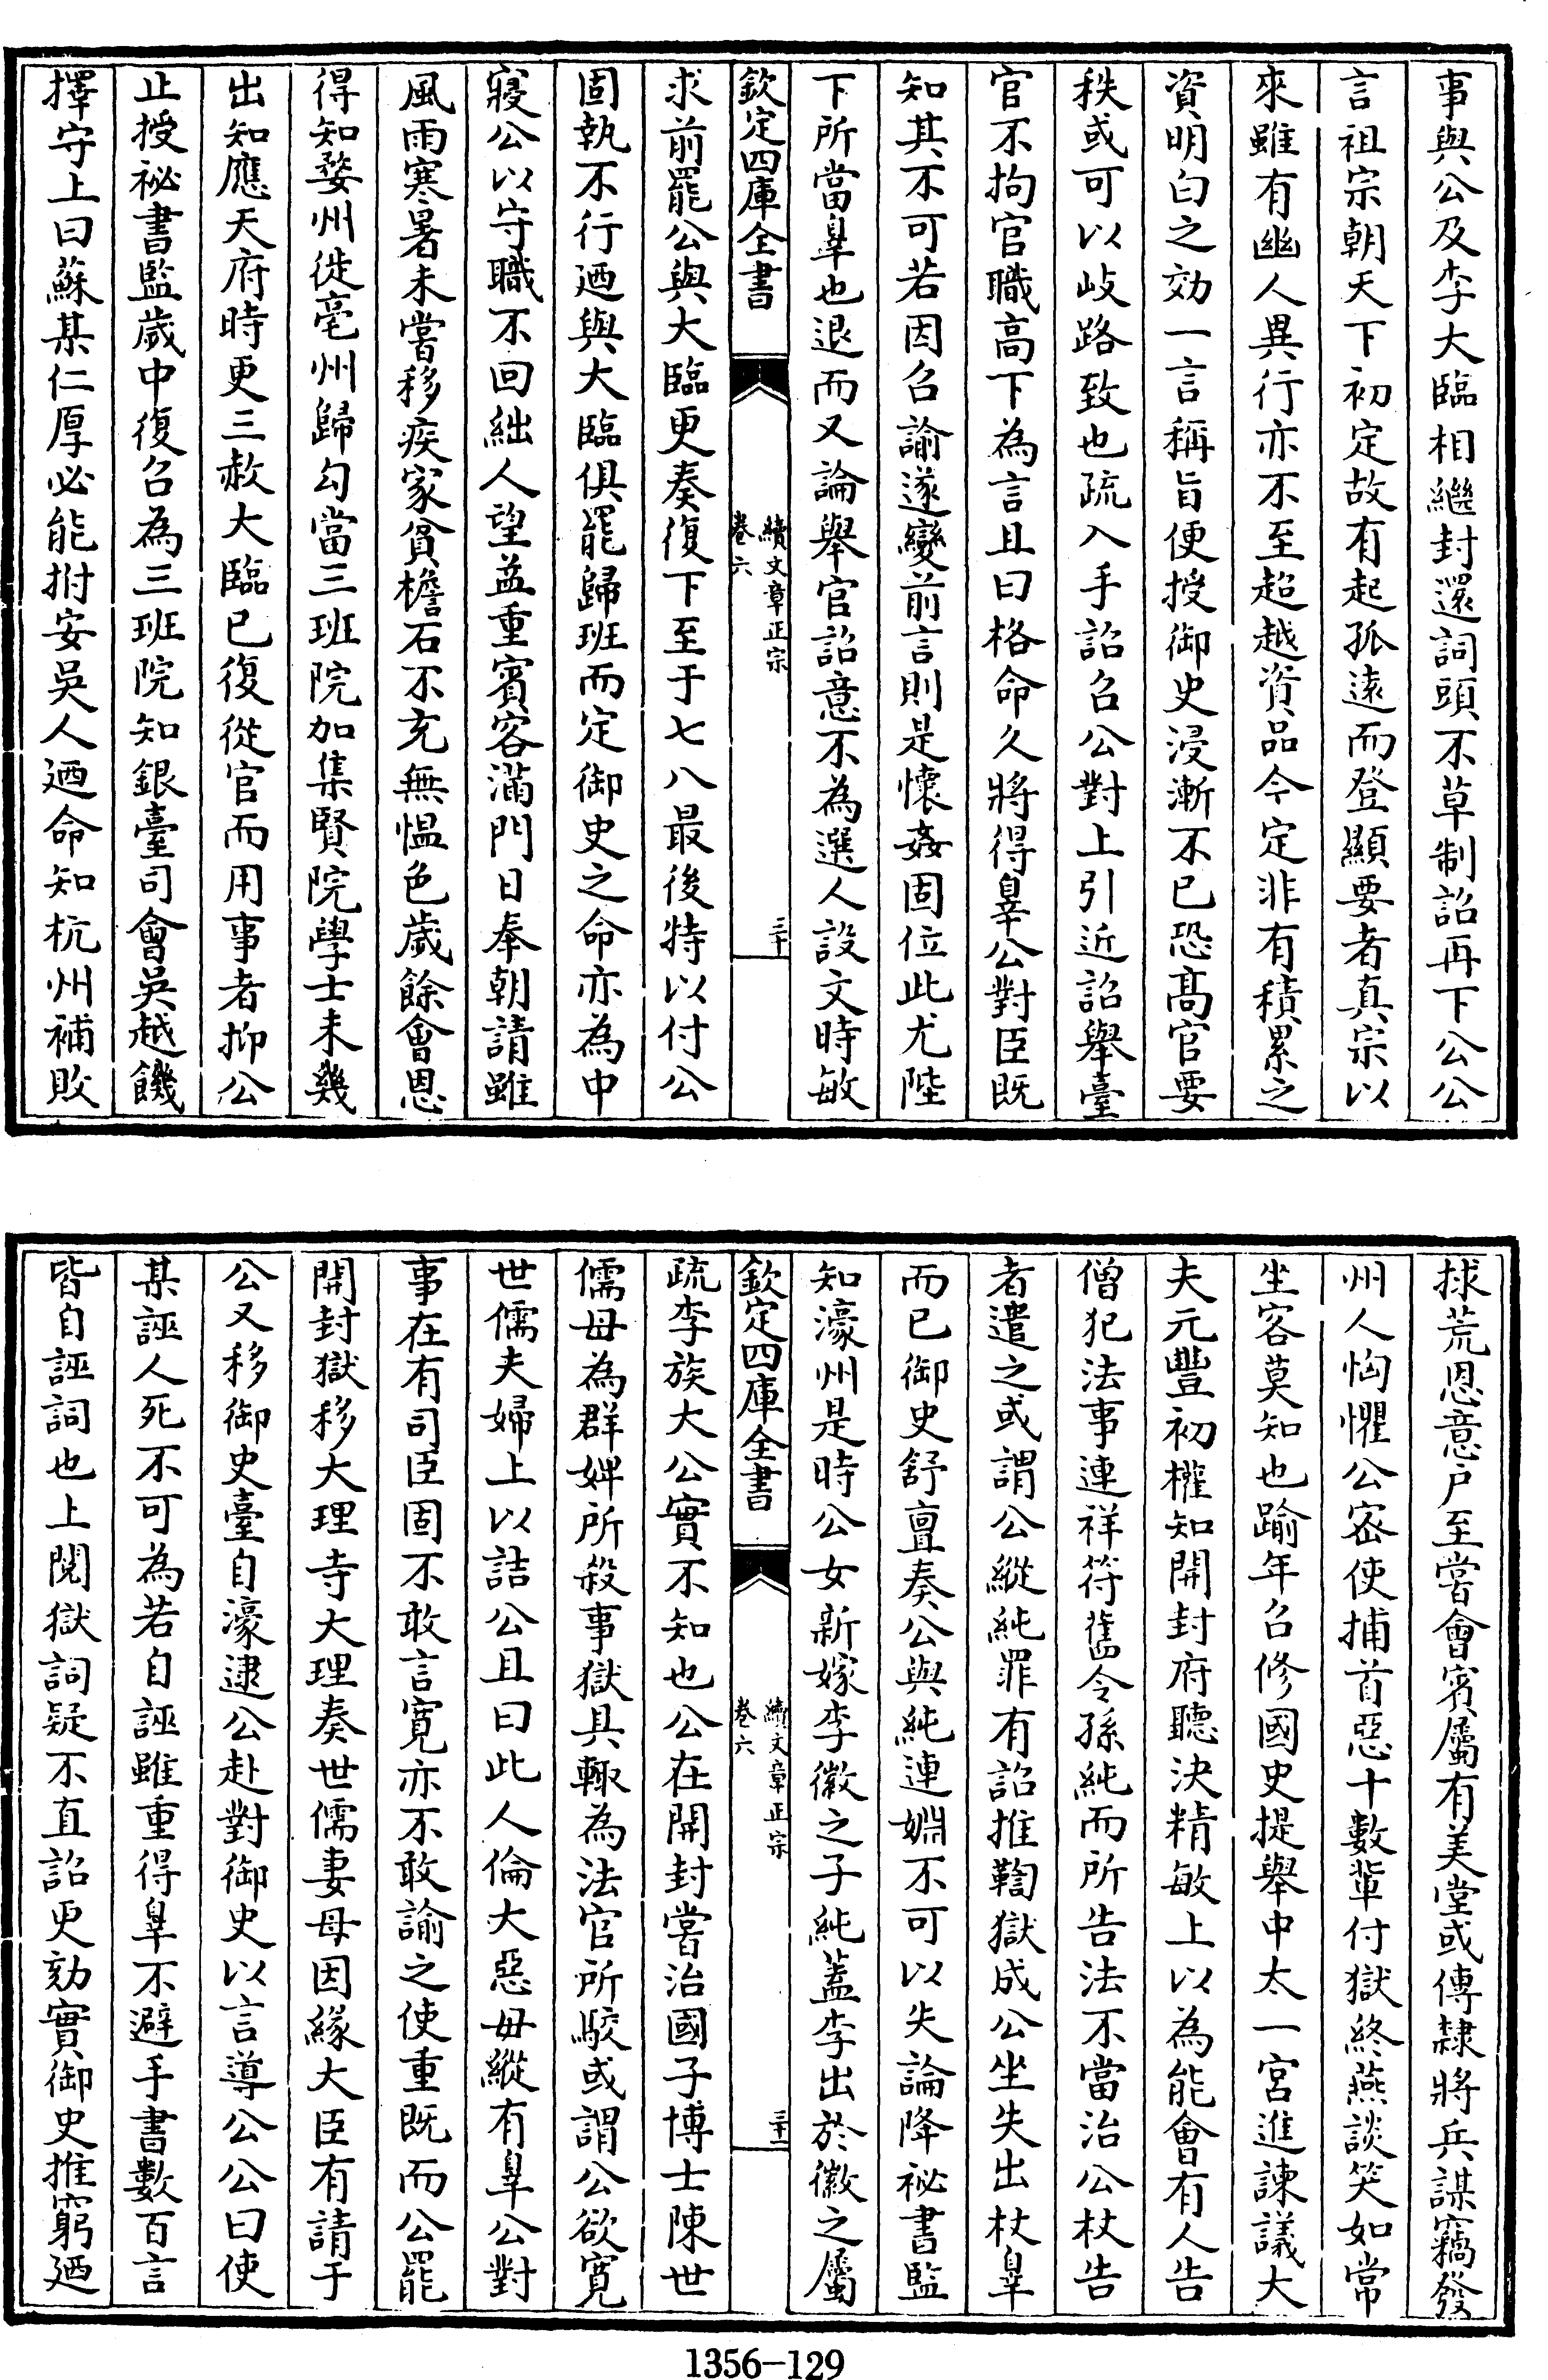 事與公及李大臨相繼封還詞頭不草制詔再下公公
言祖宗朝天下初定故有起孤遠而登顯要者真宗以
來雖有幽人異行亦不至超越資品今定非有積累之
資明白之効一言稱旨便授御史浸漸不已恐髙官要
秩或可以歧路致也疏入手詔召公對上引近詔舉臺
官不拘官職高下為言且曰格命久將得辠公對臣既
知其不可若因召諭遂變前言則是懷姦固位此尤陛
下所當辠也退而又論舉官詔意不為選人設文時敏
欽定四庫全書
續文章正宗
卷六
三十
求前罷公與大臨更奏復下至于七八最後特以付公
固執不行廼與大臨俱罷歸班而定御史之命亦為中
寢公以守職不回絀人望益重賓客滿門日奉朝請雖
風雨寒暑未嘗移疾家貧檐石不充無愠色歲餘會恩
得知婺州徙亳州歸勾當三班院加集賢院學士未幾
出知應天府時更三赦大臨已復從官而用事者抑公
止授祕書監歲中復召為三班院知銀臺司會吳越饑
擇守上曰蘇某仁厚必能拊安吳人廼命知杭州補敗
捄荒恩意戶至嘗會賓屬有美堂或傳隸將兵謀竊發
州人恟懼公密使捕首惡十數輩付獄終燕談笑如常
坐客莫知也踰年召修國史提舉中太一宮進諫議大
夫元豐初權知開封府聽決精敏上以為能會有人告
僧犯法事連祥符舊令孫純而所告法不當治公杖告
者遣之或謂公縱純罪有詔推鞫獄成公坐失出杖辠
而已御史舒亶奏公與純連婣不可以失論降祕書監
知濠州是時公女新嫁李徽之子純蓋李出於徽之屬
欽定四庫全書
續文章正宗
卷六
三十一
疏李族大公實不知也公在開封嘗治國子博士陳世
儒母為群婢所殺事獄具輙為法官所駮或謂公欲寛
世儒夫婦上以詰公且曰此人倫大惡毋縱有辠公對
事在有司臣固不敢言寛亦不敢諭之使重既而公罷
開封獄移大理寺大理奏世儒妻母因緣大臣有請于
公又移御史臺自濠逮公赴對御史以言導公公曰使
某誣人死不可為若自誣雖重得辠不避手書數百言
皆自誣詞也上閱獄詞疑不直詔更劾實御史推窮廼
1356-129